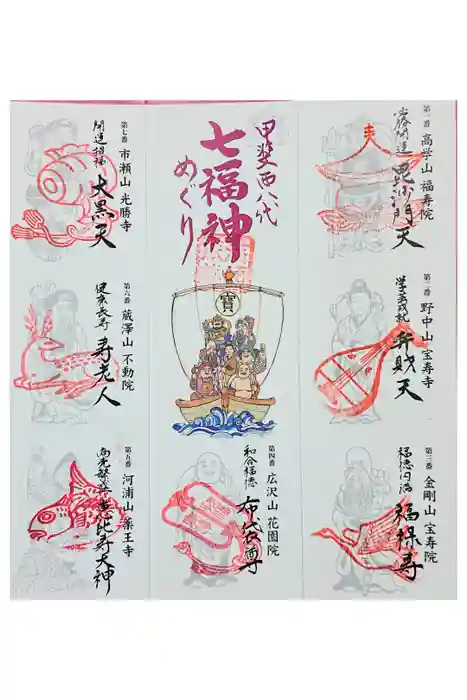 甲斐西八代
七福神
めぐり
寶
第一番
高学山 福寿院
必勝開運
毘沙門天
第二番
野中山 宝寿寺
学業成就
弁財天
第三番
金剛山 宝寿院
福徳円満
福禄寿
第四番
広沢山 花園院
和合福徳
布袋尊
第五番
河浦山 薬王寺
商売繁盛
恵比寿大神
第六番
蔵澤山 不動院
健康長寿
寿老人
第七番
市瀬山 光勝寺
開運招福
大黒天